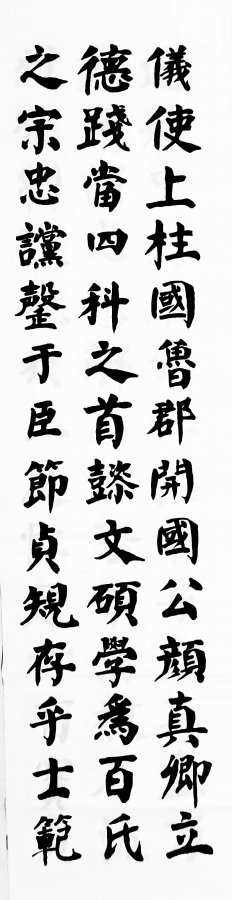 儀使上柱國魯郡開國公顏真卿立
德踐當四科之首懿文碩學為百氏
之宗忠讜罄于臣節貞規存乎士範